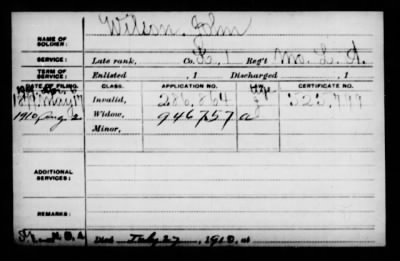 NAME OF SOLDIER: Wilson, John
SERVICE: Late rank, Co. L. 1 Reg't Mo. L. A.
TERM OF SERVICE: Enlisted , 1 Discharged , 1
DATE OF FILING. CLASS. APPLICATION NO. CERTIFICATE NO.
May Invalid, 286,864
1910 Aug 2 Widow, 946757
Minor,
ADDITIONAL SERVICES:
REMARKS:
Died July 27, 1910, at